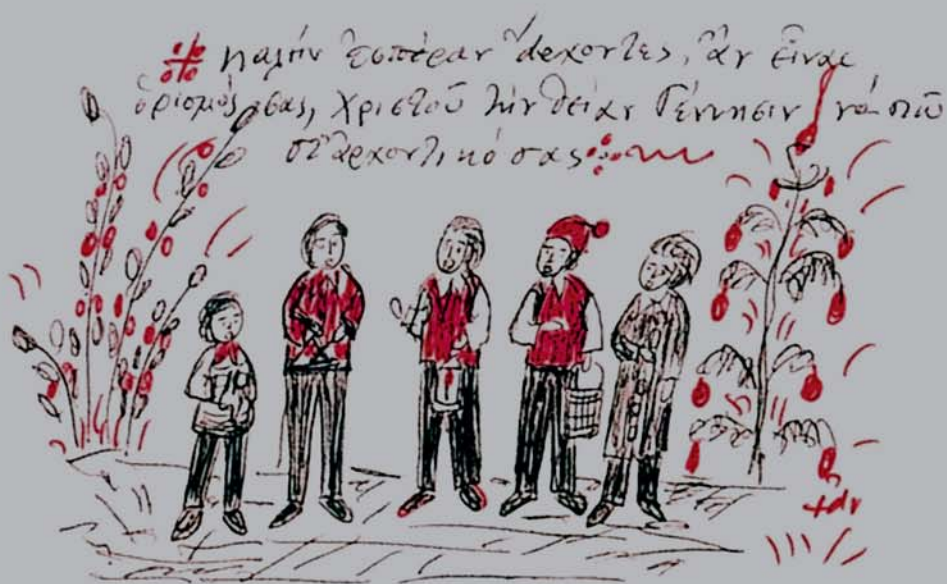 Καλήν ἑσπέραν ἄρχοντες, ἂν εἶναι
ὁρισμός σας, Χριστοῦ τὴν θείαν Γέννησιν νὰ πῶ
στ᾽ ἀρχοντικό σας